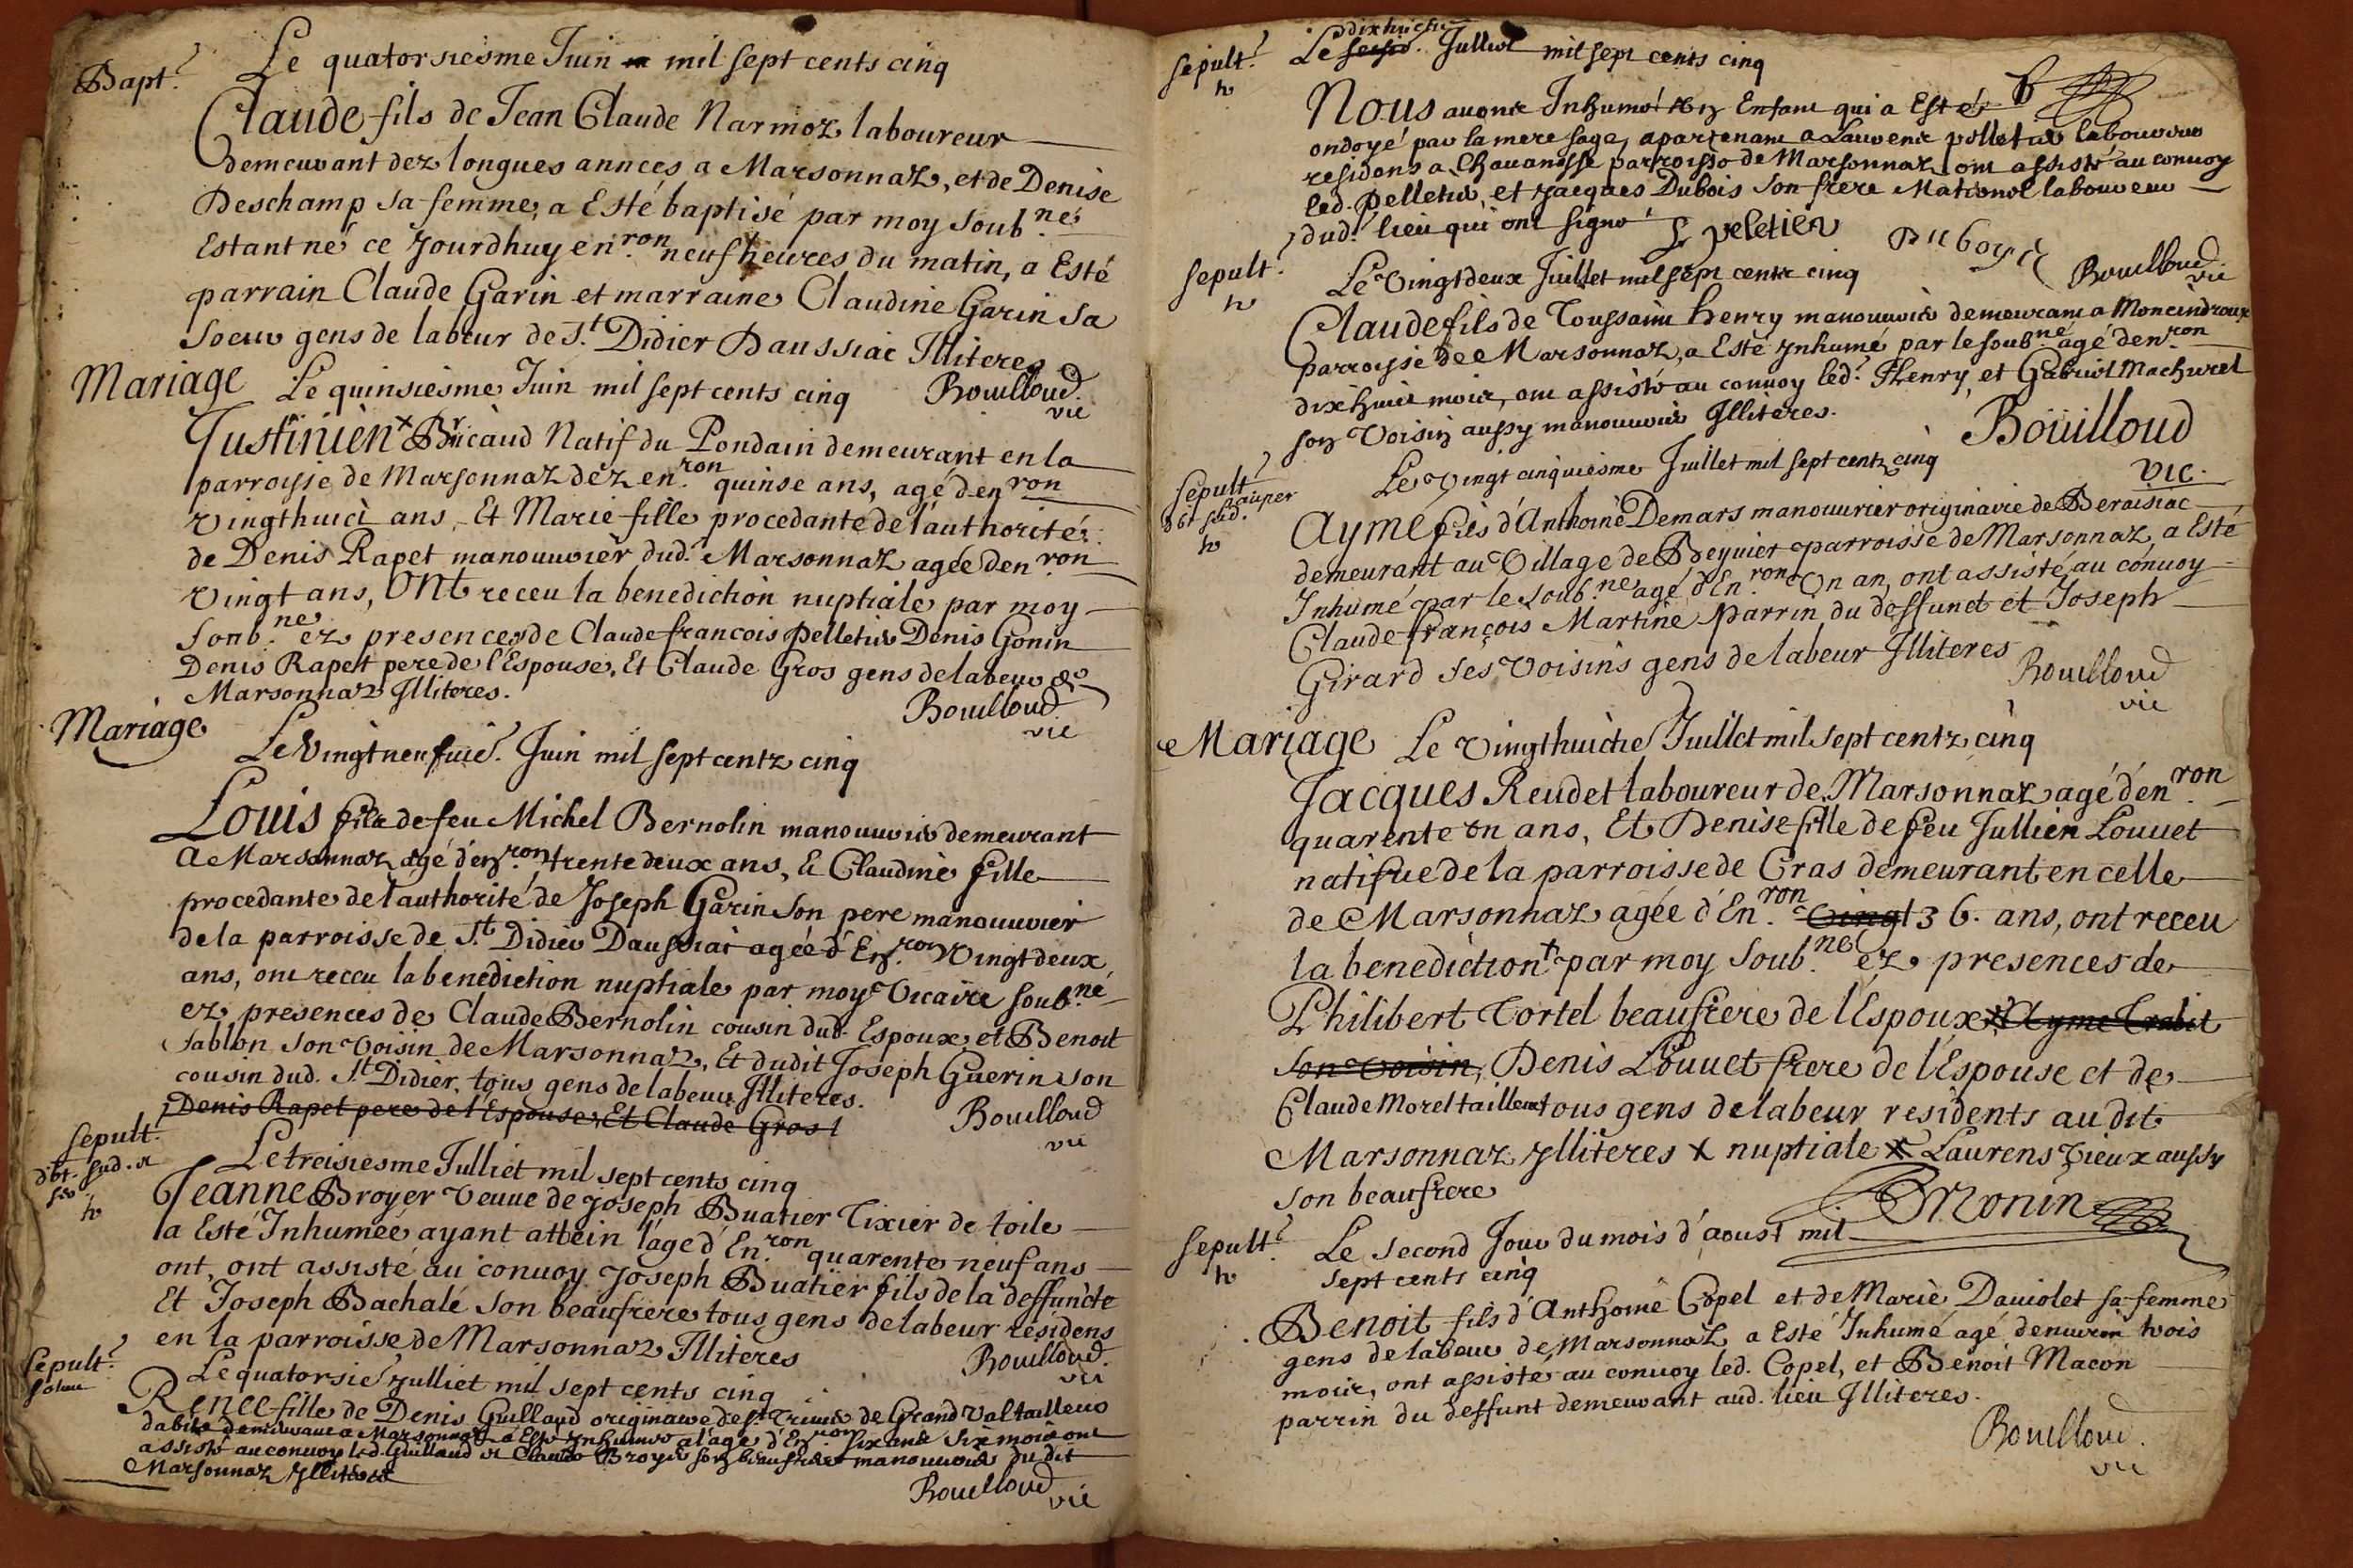 Bapt.
Le quatorsiesme Juin mil sept cents cinq
Claude fils de Jean Claude Narmoz laboureur
demeurant dez longues annees a Marsonnaz, et de Denise
Deschamp sa femme, a Esté baptisé par moy soub.né
Estant né ce Jourdhuy en.ron neuf heures du matin, a Esté
parrain Claude Garin et marraine Claudine Garin sa
soeur gens de labeur de St. Didier Daussiac Illiteres
Bouilloud
vic
Mariage
Le quinsiesme Juin mil sept cents cinq
Justinien Bricaud Natif du Pondain demeurant en la
parroisse de Marsonnaz dez en.ron quinse ans, agé den.ron
vingthuict ans, Et Marie fille procedante de l'authorité
de Denis Rapet manouuvier dud. Marsonnaz agée den.ron
vingt ans, ont receu la benediction nuptiale par moy
soub.né ez presences de Claude francois Pelletier Denis Gonin
Denis Rapet pere de l'Espouse, Et Claude Gros gens de labeur de
Marsonnaz Illiteres.
Bouilloud
vic
Mariage
Le Vingt neufuie. Juin mil sept centz cinq
Louis fils de feu Michel Bernolin manouuvier demeurant
a Marsonnaz agé d'en.ron trente deux ans, Et Claudine fille
procedante de l'authorité de Joseph Garin son pere manouuvier
de la parroisse de St. Didier Daussiac agée d'En.ron Vingt deux
ans, ont receu la benediction nuptiale par moy Vicaire soub.né
ez presences de Claude Bernolin cousin dud. Espoux, et Benoit
Sablon son Voisin de Marsonnaz, Et dudit Joseph Guerin son
cousin dud. St. Didier, tous gens de labeur Illiteres.
Denis Rapet pere de l'Espouse, Et Claude Gros
Bouilloud
vic
Sepult.
Le treisiesme Julliet mil sept cents cinq
Jeanne Broyer Veuue de Joseph Buatier Tixier de toile
a Esté Inhumée, ayant attein l'age d'En.ron quarente neuf ans
ont, ont assisté au conuoy Joseph Buatier fils de la deffuncte
Et Joseph Bachalé son beaufrere tous gens de labeur residens
en la parroisse de Marsonnaz Illiteres
Bouilloud.
vic
Sepult.
Le quatorsie. Julliet mil sept cents cinq
Renee fille de Denis Guillaud originaire de St. de Grand Val tailleur
dabits demeurant a Marsonnaz a Esté Inhumée a l'age d'En.ron six ans six mois ont
assisté au conuoy led. Guillaud et Claude Broyer son beaufrere manouuvier du dit
Marsonnaz Illiteres
Bouilloud
vic
Sepult.
h
dixhuictie
Le Julliet mil sept cents cinq
Nous auons Inhumé un Enfant qui a Esté
ondoyé par la mere sage, apartenant a Laurent pelletier laboureur
residens a Chauanosse parroisse de Marsonnaz ont assisté au conuoy
led. Pelletier, et Jacques Dubois son frere Maternel laboureur
dud. lieu qui ont signé
L peletier
Duboys
Bouilloud
vic
Sepult.
h
Le Vingtdeux Juillet mil sept cents cinq
Claude fils de Toussaint henry manouuvier demeurant a Moncindroux
parroisse de Marsonnaz, a Esté Inhumé par le soub.né agé den.ron
dixhuict mois, ont assisté au conuoy led. Henry, et Gabriel Machurel
son Voisin aussy manouuvier Illiteres.
Bouilloud
vic.
Sepult.
pauper
h
Le Vingt cinquiesme Juillet mil sept centz cinq
Aymé fils d'Anthoine Demars manouurier originaire de Beraisiac
demeurant au Village de Beyuier parroisse de Marsonnaz a Esté
Inhumé par le soub.né agé d'En.ron Un an, ont assisté au conuoy
Claude françois Martine parrin du deffunct et Joseph
Girard ses Voisins gens de labeur Illiteres
Bouilloud
vic
Mariage
Le Vingthuictie Juillet mil sept centz cinq
Jacques Reudet laboureur de Marsonnaz agé d'en.ron
quarente un ans, Et Denise fille de feu Jullien Louuet
natifue de la parroisse de Cras demeurant en celle
de Marsonnaz agée d'En.ron Vingt 36. ans, ont receu
la benediction + par moy soub.né ez presences de
Philibert Tortel beaufrere de l'Espoux Ayme Trabit
son Voisin, Denis Louuet frere de l'Espouse et de
Claude Morel tailleur tous gens de labeur residents au dit
Marsonnaz Illiteres x nuptiale x Laurens Vieux aussy
son beaufrere
Monin
Sepult.
h
Le second Jour du mois d'aoust mil
sept cents cinq
Benoit fils d'Anthoine Copel et de Marie Dauiolet sa femme
gens de labeur de Marsonnaz a Esté Inhumé agé denuiron trois
mois, ont assisté au conuoy led. Copel, et Benoit Macon
parrin du deffunt demeurant aud. lieu Illiteres.
Bouilloud.
vic